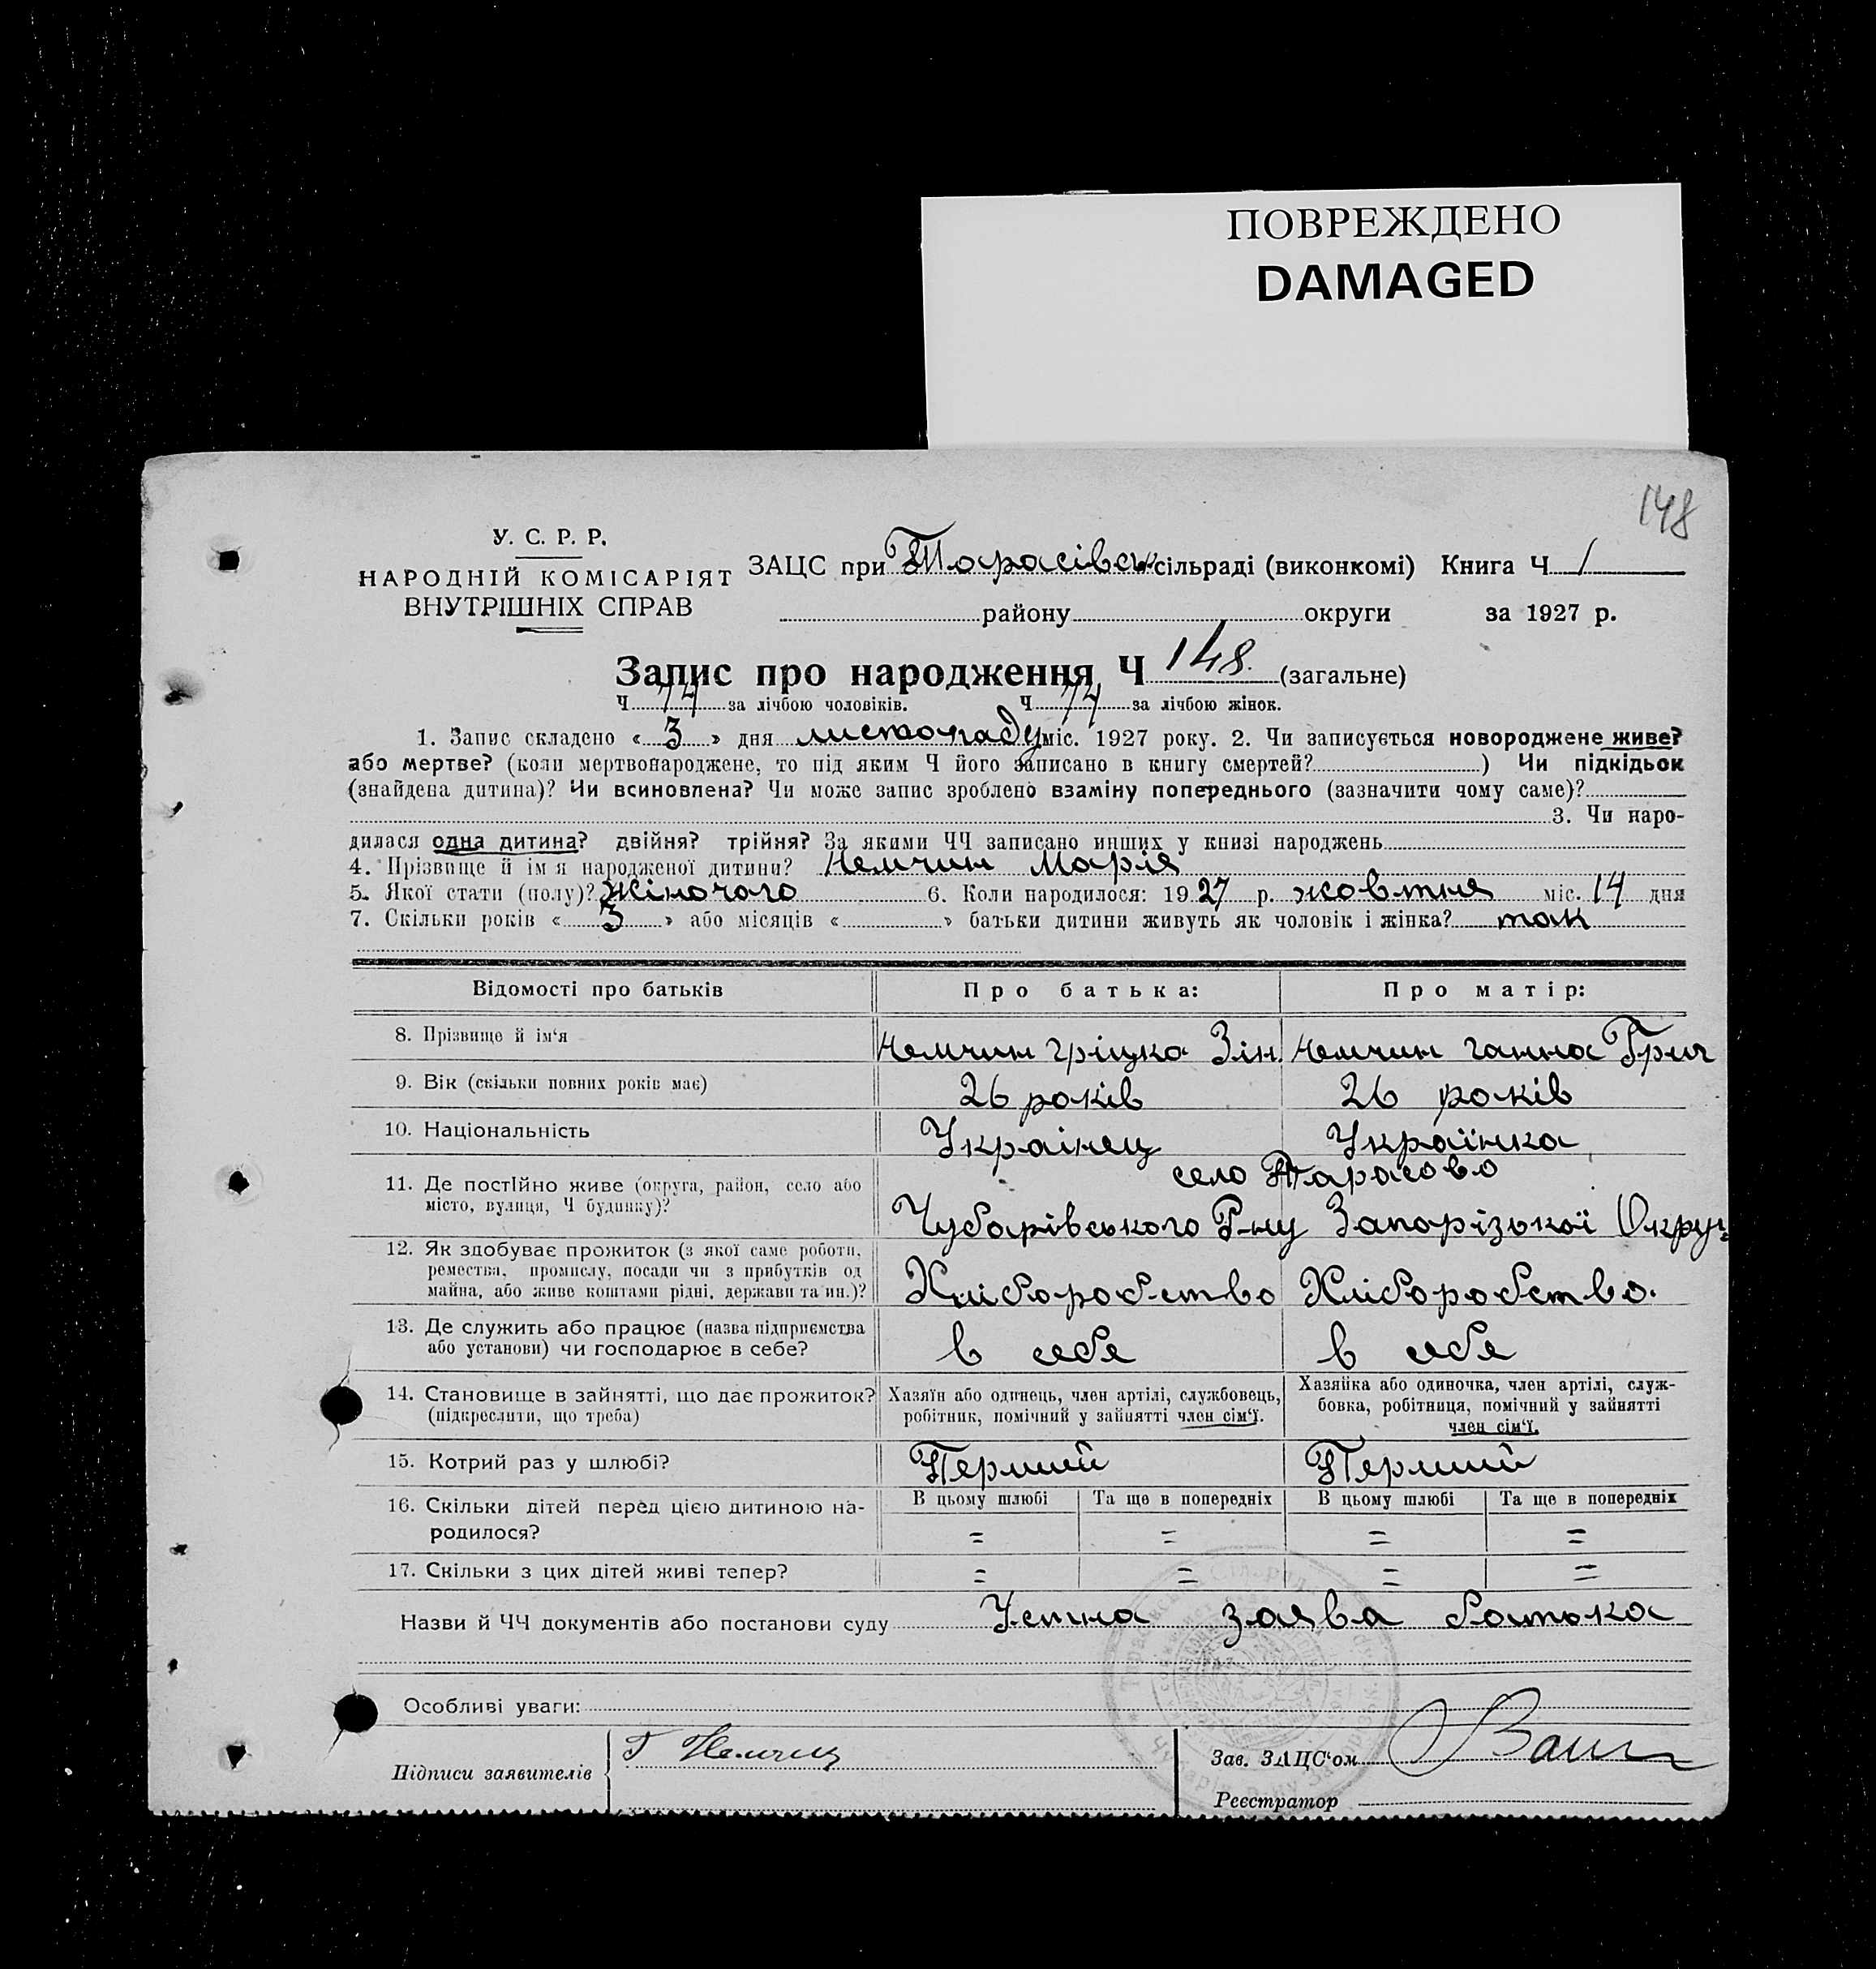 ПОВРЕЖДЕНО
DAMAGED
148
У. С. Р. Р.
НАРОДНІЙ КОМІСАРІЯТ
ВНУТРІШНІХ СПРАВ
ЗАЦС при Тарасівськ сільраді (виконкомі) Книга Ч 1
району округи за 1927 р.
Запис про народження Ч 148. (загальне)
Ч 74 за лічбою чоловіків. Ч 74 за лічбою жінок.
1. Запис складено « 3 » дня листопаду міс. 1927 року. 2. Чи записується новороджене живе?
або мертве? (коли мертвонароджене, то під яким Ч його записано в книгу смертей? ) Чи підкідьок
(знайдена дитина)? Чи всиновлена? Чи може запис зроблено взаміну попереднього (зазначити чому саме)?
3. Чи наро-
дилася одна дитина? двійня? трійня? За якими ЧЧ записано инших у книзі народжень
4. Прізвище й ім'я народженої дитини? Немчин Марія
5. Якої стати (полу)? жіночого 6. Коли народилося: 1927 р. жовтня міс. 14 дня
7. Скільки років « 3 » або місяців « » батьки дитини живуть як чоловік і жінка? так
Відомості про батьків Про батька: Про матір:
8. Прізвище й ім'я Немчин Гріцко Зін. Немчин Ганна Григ
9. Вік (скільки повних років має) 26 років 26 років
10. Національність Украінец Українка
село Тарасово
11. Де постійно живе (округа, район, село або
місто, вулиця, Ч будинку)? Чубарівського Р-ну Запорізької Округ
12. Як здобуває прожиток (з якої саме роботи,
ремества, промислу, посади чи з прибутків од
майна, або живе коштами рідні, держави та ин.)? Хліборобство Хліборобство.
13. Де служить або працює (назва підприємства
або установи) чи господарює в себе? в себе в себе
14. Становище в зайнятті, що дає прожиток?
(підкреслити, що треба)
Хазяїн або одинець, член артілі, службовець,
робітник, помічний у зайнятті член сім'ї.
Хазяйка або одиночка, член артілі, служ-
бовка, робітниця, помічний у зайнятті
член сім'ї.
15. Котрий раз у шлюбі? Перший Перший
16. Скільки дітей перед цією дитиною на-
родилося?
В цьому шлюбі Та ще в попередніх В цьому шлюбі Та ще в попередніх
= = = =
17. Скільки з цих дітей живі тепер? = = = =
Назви й ЧЧ документів або постанови суду Устна заява батька
Особливі уваги:
Підписи заявителів Г Немчин
Зав. ЗАЦС'ом
Реєстратор